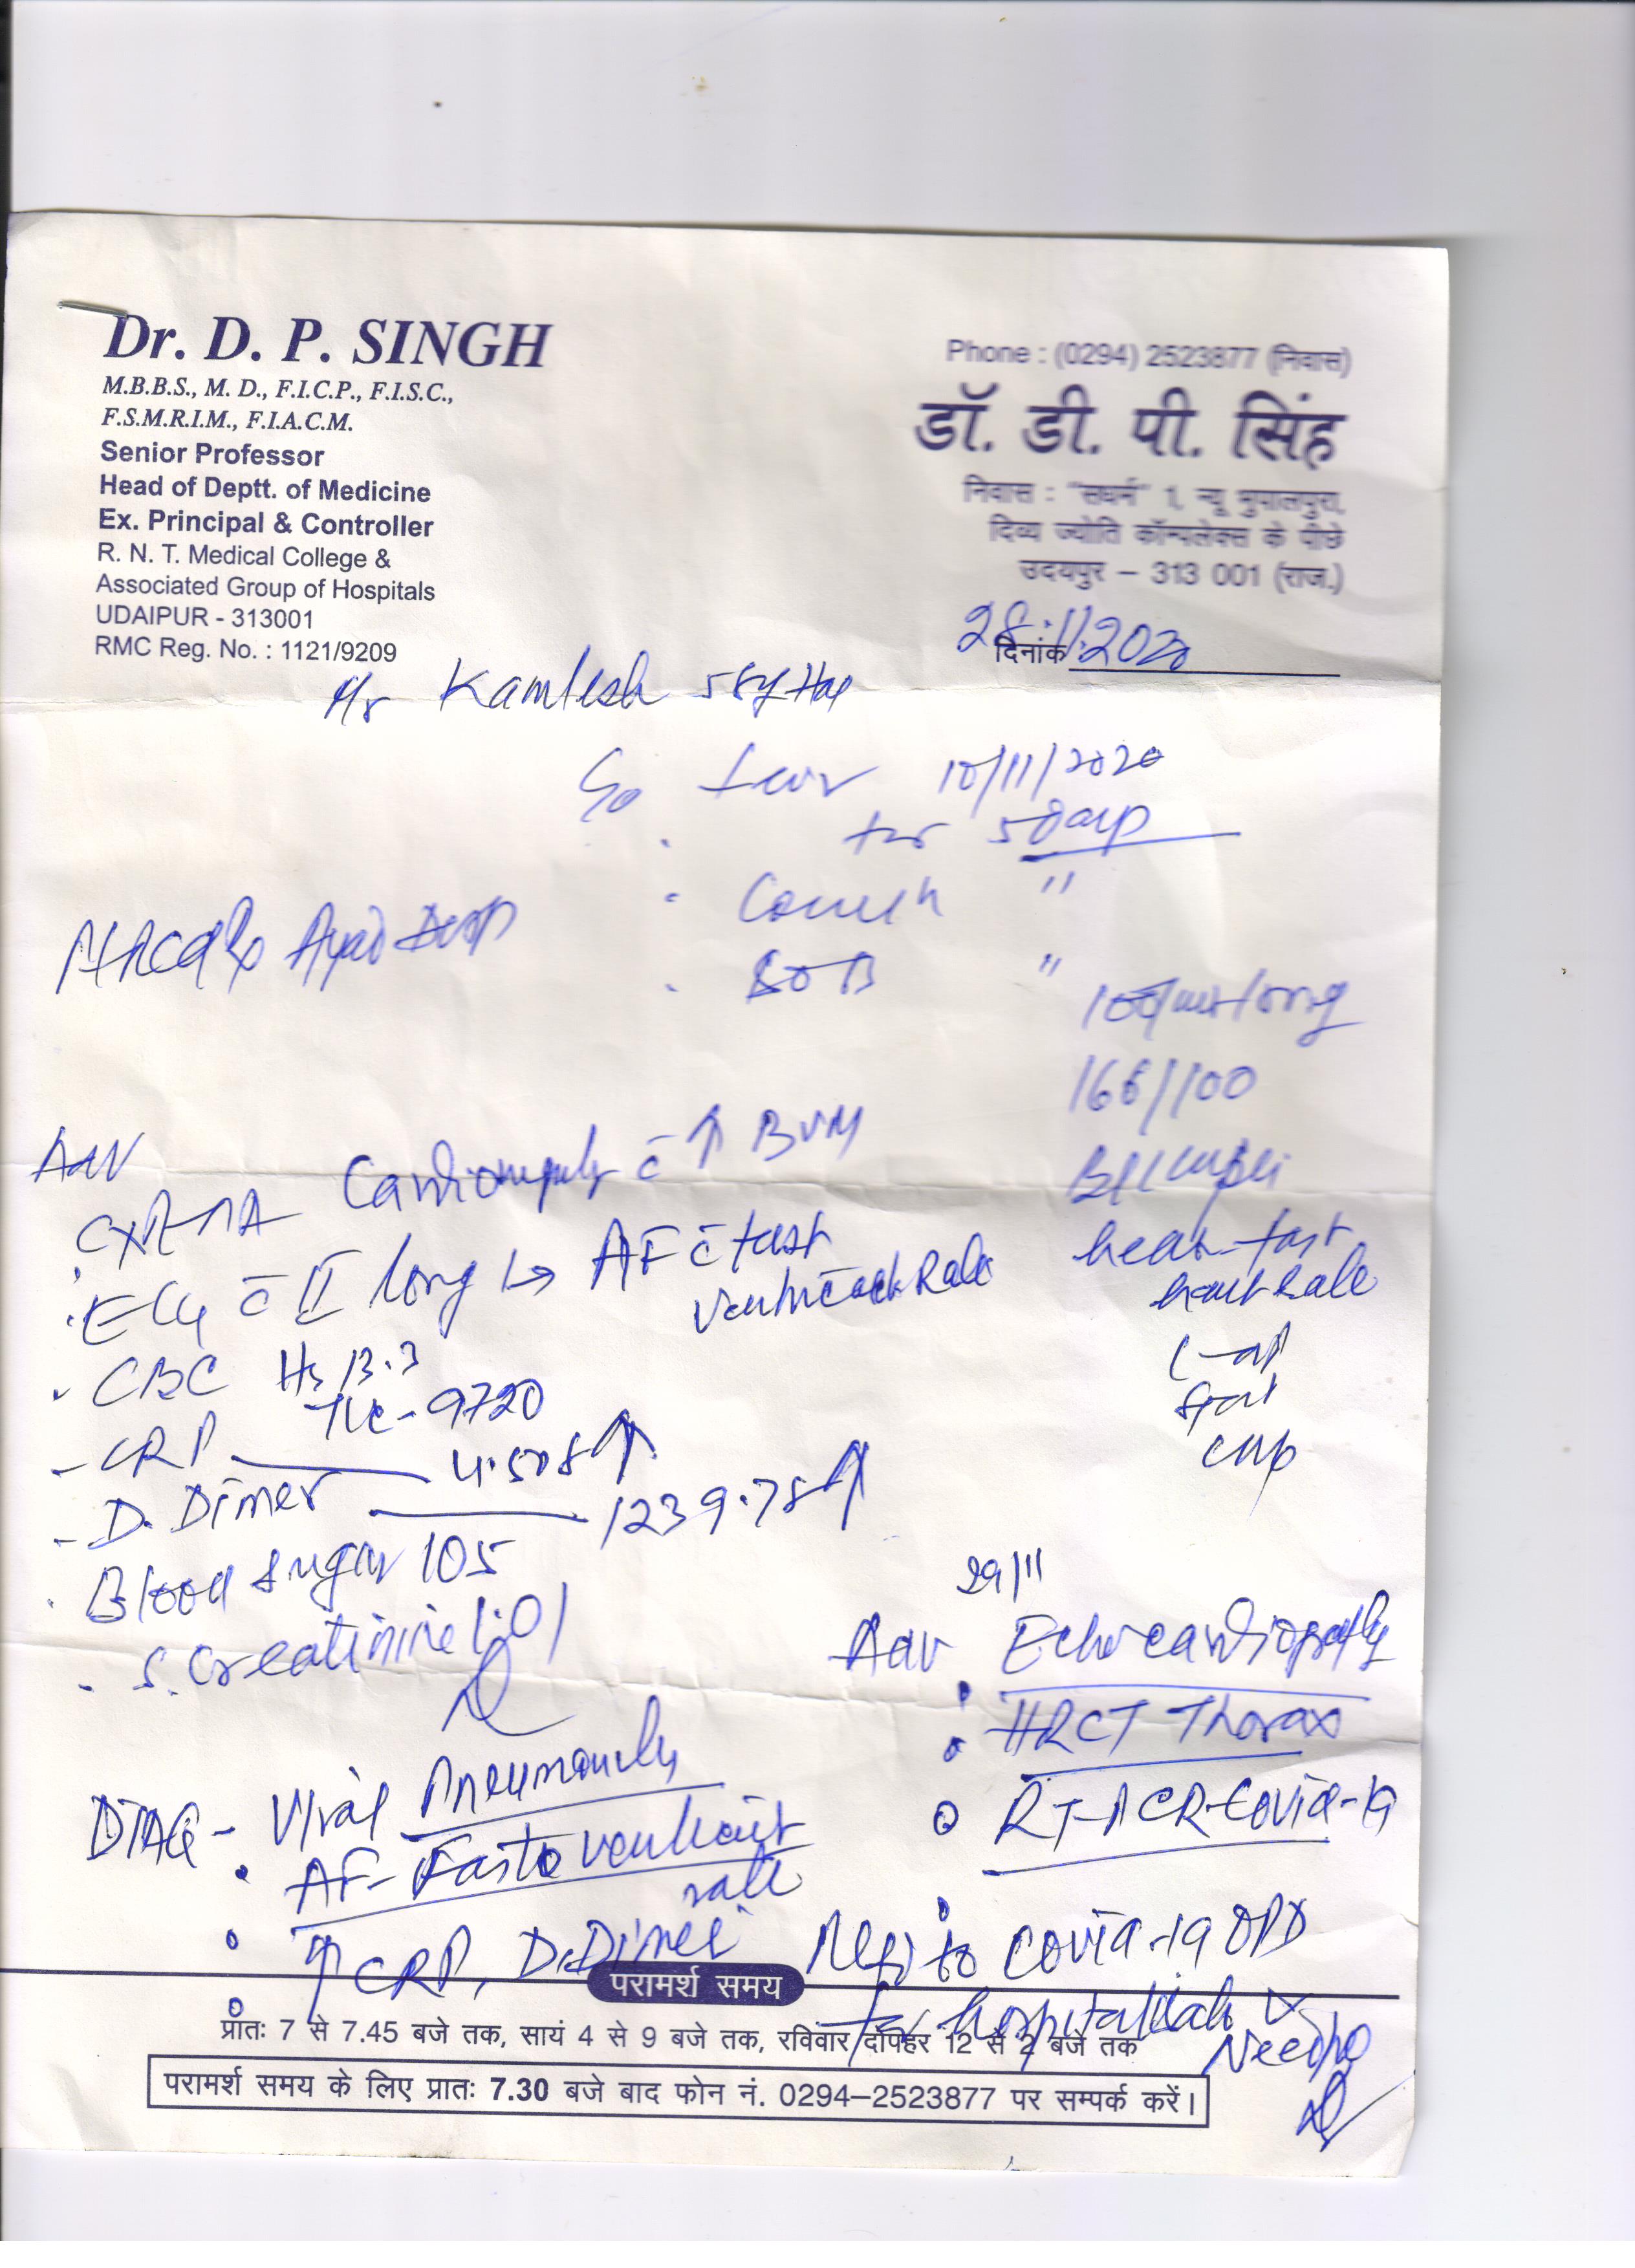 Dr. D. P. SINGH
M.B.B.S., M. D., F.I.C.P., F.I.S.C.,
F.S.M.R.I.M., F.I.A.C.M.
Senior Professor
Head of Deptt. of Medicine
Ex. Principal & Controller
R. N. T. Medical College &
Associated Group of Hospitals
UDAIPUR - 313001
RMC Reg. No. : 1121/9209
Phone : (0294) 2523877 (निवास)
डॉ. डी. पी. सिंह
निवास : "सधर्म" 1, न्यू भुपालपुरा,
दिव्य ज्योति कॉम्पलेक्स के पीछे
उदयपुर – 313 001 (राज.)
दिनांक 28.11.2020
Kamlesh 58y
10/11/2020
"
SOB "
166/100
Adv
Cardiomegaly c̄ ↑ BVM
ECG c̄ II long ↳ AF c̄ fast
ventricular Rate
heart fast
heart rate
CBC Hb 13.3
TLC - 9720
- CRP 4.508 ↑
- D. Dimer 1239.78 ↑
Blood sugar 105
S. Creatinine 1.01
29/11
Adv Echocardiography
HRCT Thorax
RT-PCR-Covid-19
DIAG - Viral
AF - Fast ventricular
rate
↑ CRP, D.Dimer
to Covid-19 OPD
for
परामर्श समय
प्रातः 7 से 7.45 बजे तक, सायं 4 से 9 बजे तक, रविवार दोपहर 12 से 2 बजे तक
परामर्श समय के लिए प्रातः 7.30 बजे बाद फोन नं. 0294–2523877 पर सम्पर्क करें।